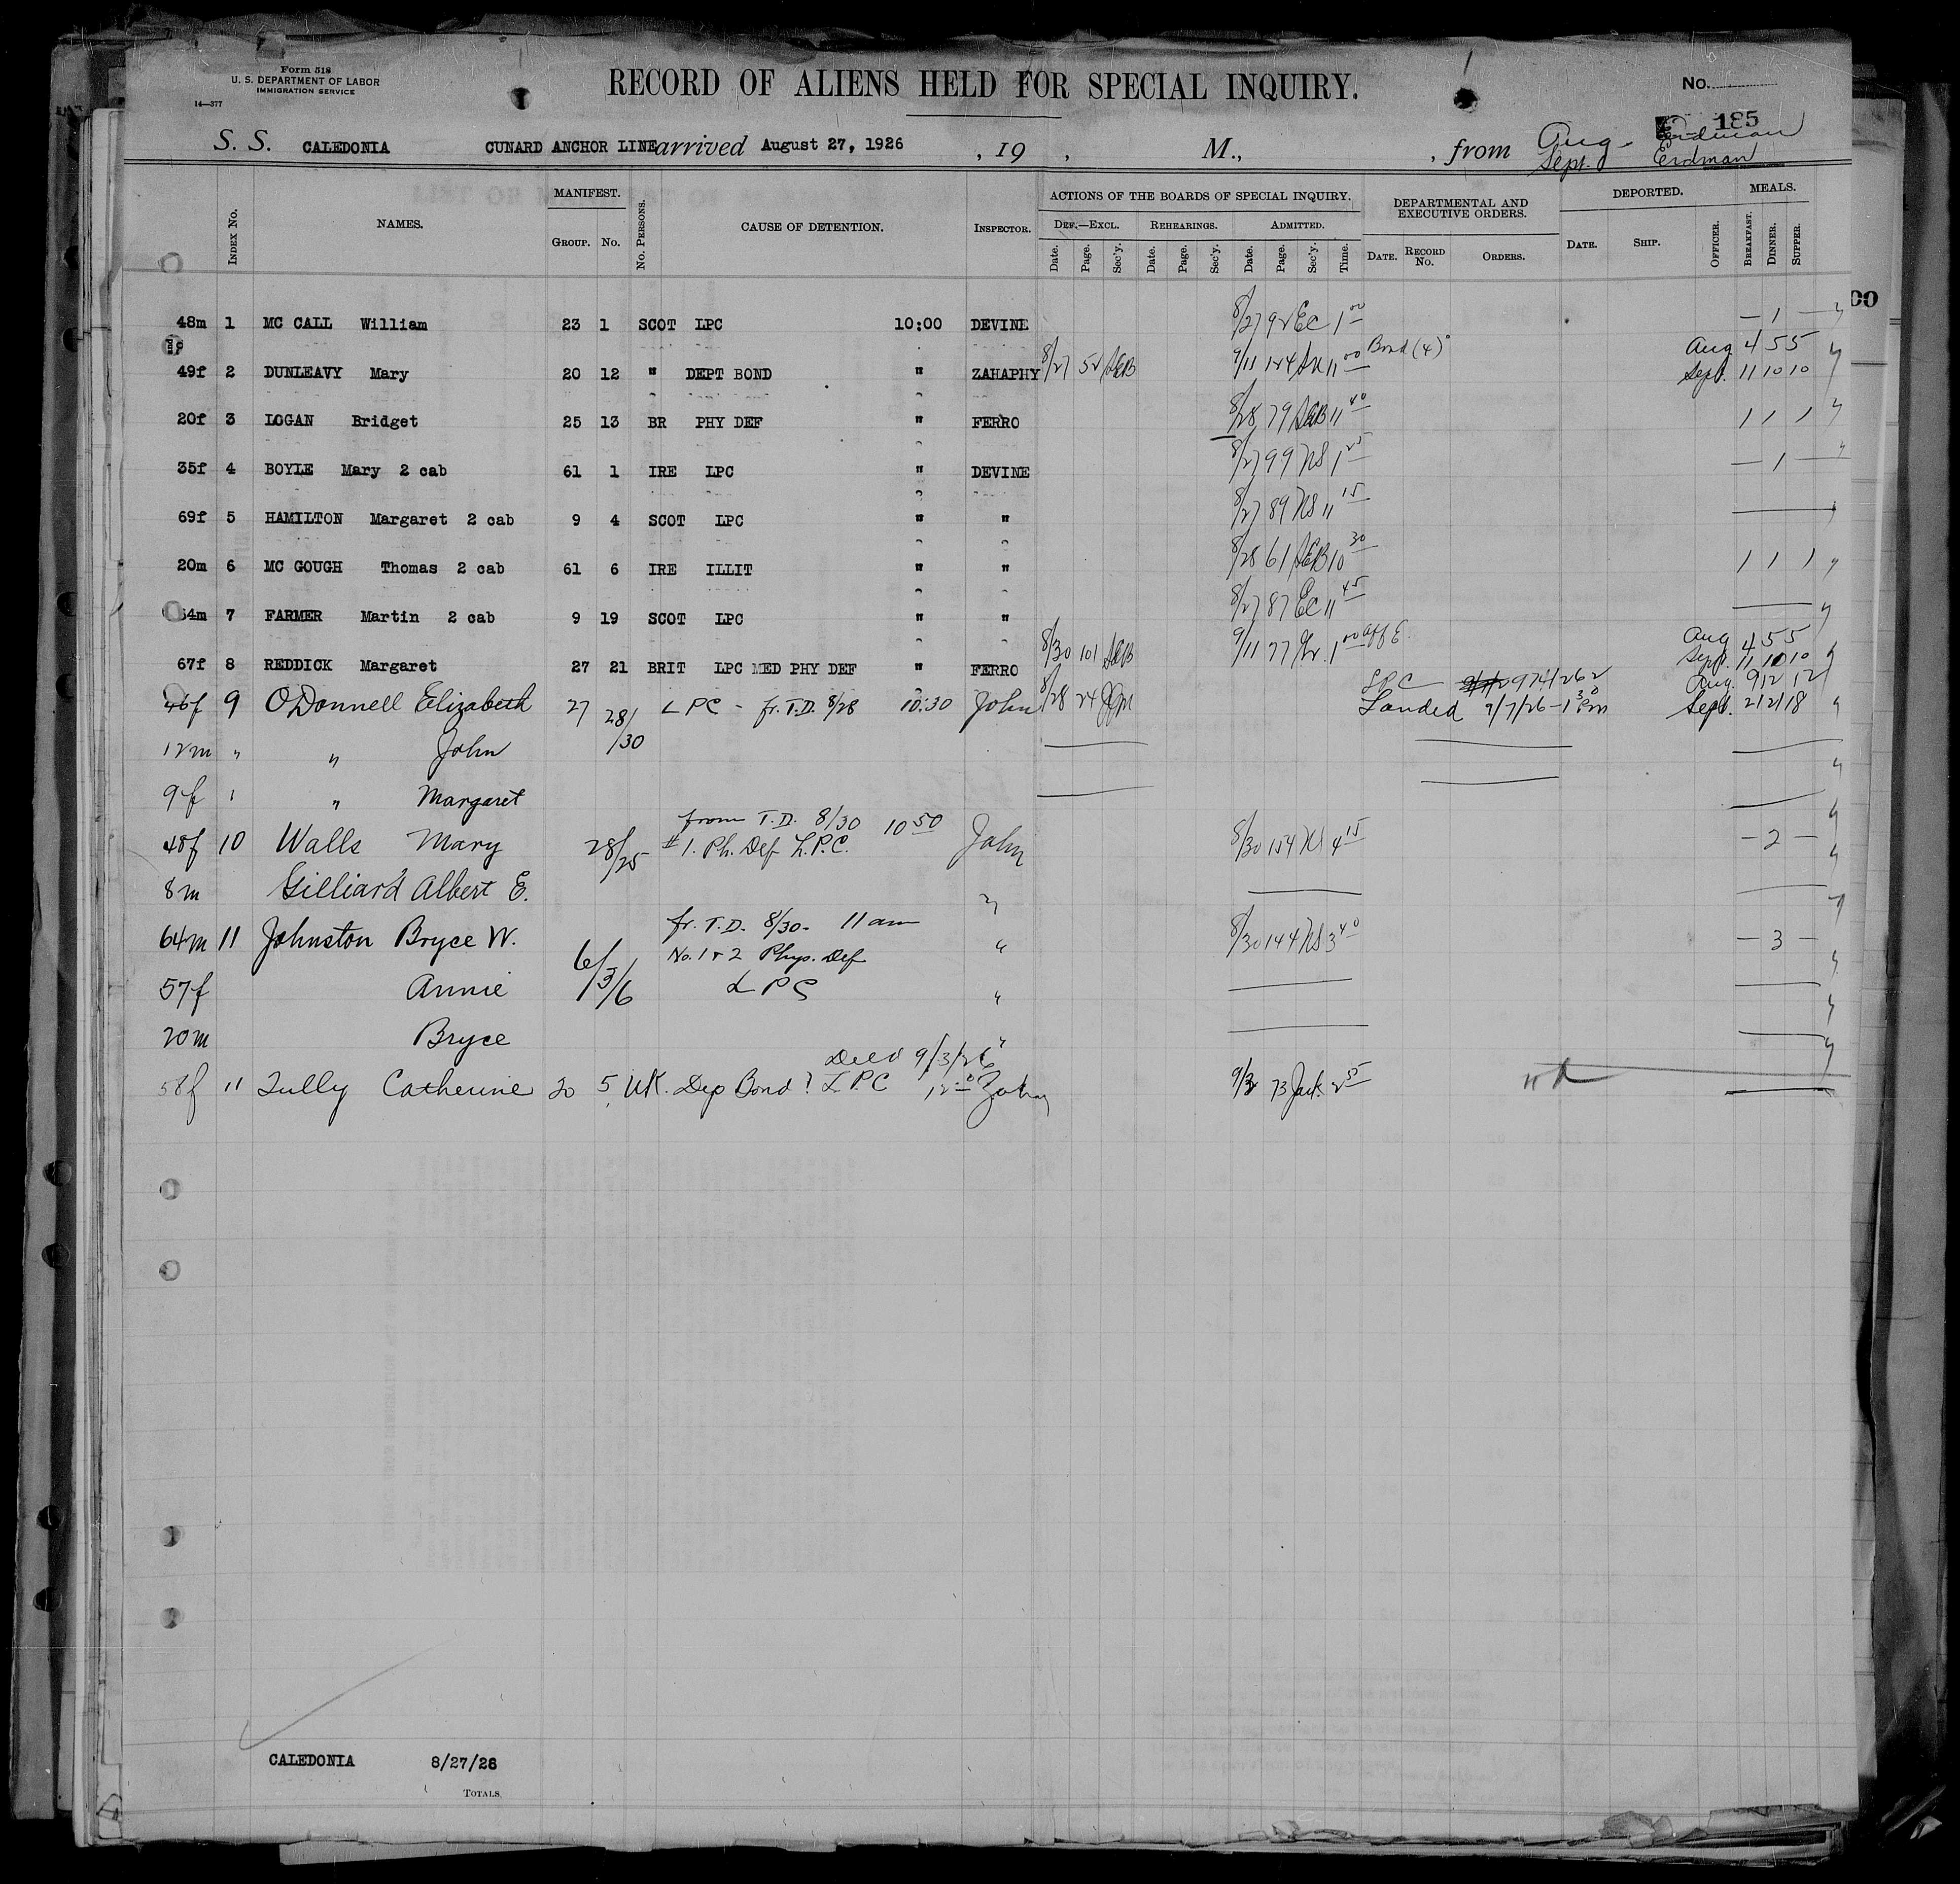 Form 518
U. S. DEPARTMENT OF LABOR
IMMIGRATION SERVICE
14—377
RECORD OF ALIENS HELD FOR SPECIAL INQUIRY.
No.
185
S. S. CALEDONIA CUNARD ANCHOR LINE arrived August 27, 1926 , 19 , M., , from Aug - Erdman
Sept. Erdman
INDEX NO. NAMES. MANIFEST. GROUP. NO. NO. PERSONS. CAUSE OF DETENTION. INSPECTOR. ACTIONS OF THE BOARDS OF SPECIAL INQUIRY. DEPARTMENTAL AND EXECUTIVE ORDERS. DEPORTED. MEALS.
DEF.—EXCL. REHEARINGS. ADMITTED.
Date. Page. Sec'y. Date. Page. Sec'y. Date. Page. Sec'y. Time. DATE. RECORD NO. ORDERS. DATE. SHIP. OFFICER. BREAKFAST. DINNER. SUPPER.
00
48m 1 MC CALL William 23 1 SCOT LPC 10:00 DEVINE 8/27 92 EC 1 00 — 1 —
49f 2 DUNLEAVY Mary 20 12 " DEPT BOND " ZAHAPHY 8/27 52 AEB 9/11 124 11 00 Bond (4) Aug 4 5 5
Sept. 11 10 10
20f 3 LOGAN Bridget 25 13 BR PHY DEF " FERRO 8/28 79 AEB 11 40 1 1 1
35f 4 BOYLE Mary 2 cab 61 1 IRE LPC " DEVINE 8/27 99 NS 1 25 — 1 —
69f 5 HAMILTON Margaret 2 cab 9 4 SCOT LPC " " 8/27 89 NS 11 15
20m 6 MC GOUGH Thomas 2 cab 61 6 IRE ILLIT " " 8/28 61 AEB 10 30 1 1 1
64m 7 FARMER Martin 2 cab 9 19 SCOT LPC " " 8/27 87 EC 11 45
67f 8 REDDICK Margaret 27 21 BRIT LPC MED PHY DEF " FERRO 8/30 101 AEB 9/11 77 1 00 Aff E. Aug 4 5 5
Sept. 11 10 10
46f 9 O'Donnell Elizabeth 27 28/30 LPC - fr. T.D. 8/28 10:30 John 8/28 24 JGM LPC 974/262 Aug. 9 12 12
Landed 9/7/26 - 1 30 PM Sept. 21 21 18
12m " " John
9f " " Margaret
48f 10 Walls Mary 28/25 from T.D. 8/30 10 50
#1. Ph. Def L.P.C. John 8/30 154 NS 4 15 — 2 —
8m Gilliard Albert E. "
64m 11 Johnston Bryce W. 6/3/6 fr. T.D. 8/30 - 11 am
No. 1 & 2 Phys. Def " 8/30 144 NS 3 40 — 3 —
57f Annie LPC "
20m Bryce "
58f 11 Tully Catherine 20 5 UK. Dep Bond? LPC Deld 9/3/26 12 00 Zahay 9/3 73 Jack. 2 55
CALEDONIA 8/27/26
TOTALS.